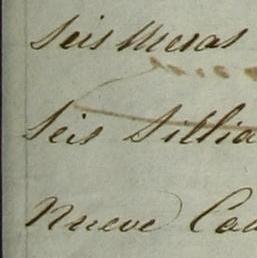 Seis Mesas
Seis Sillia
Nueve Coa